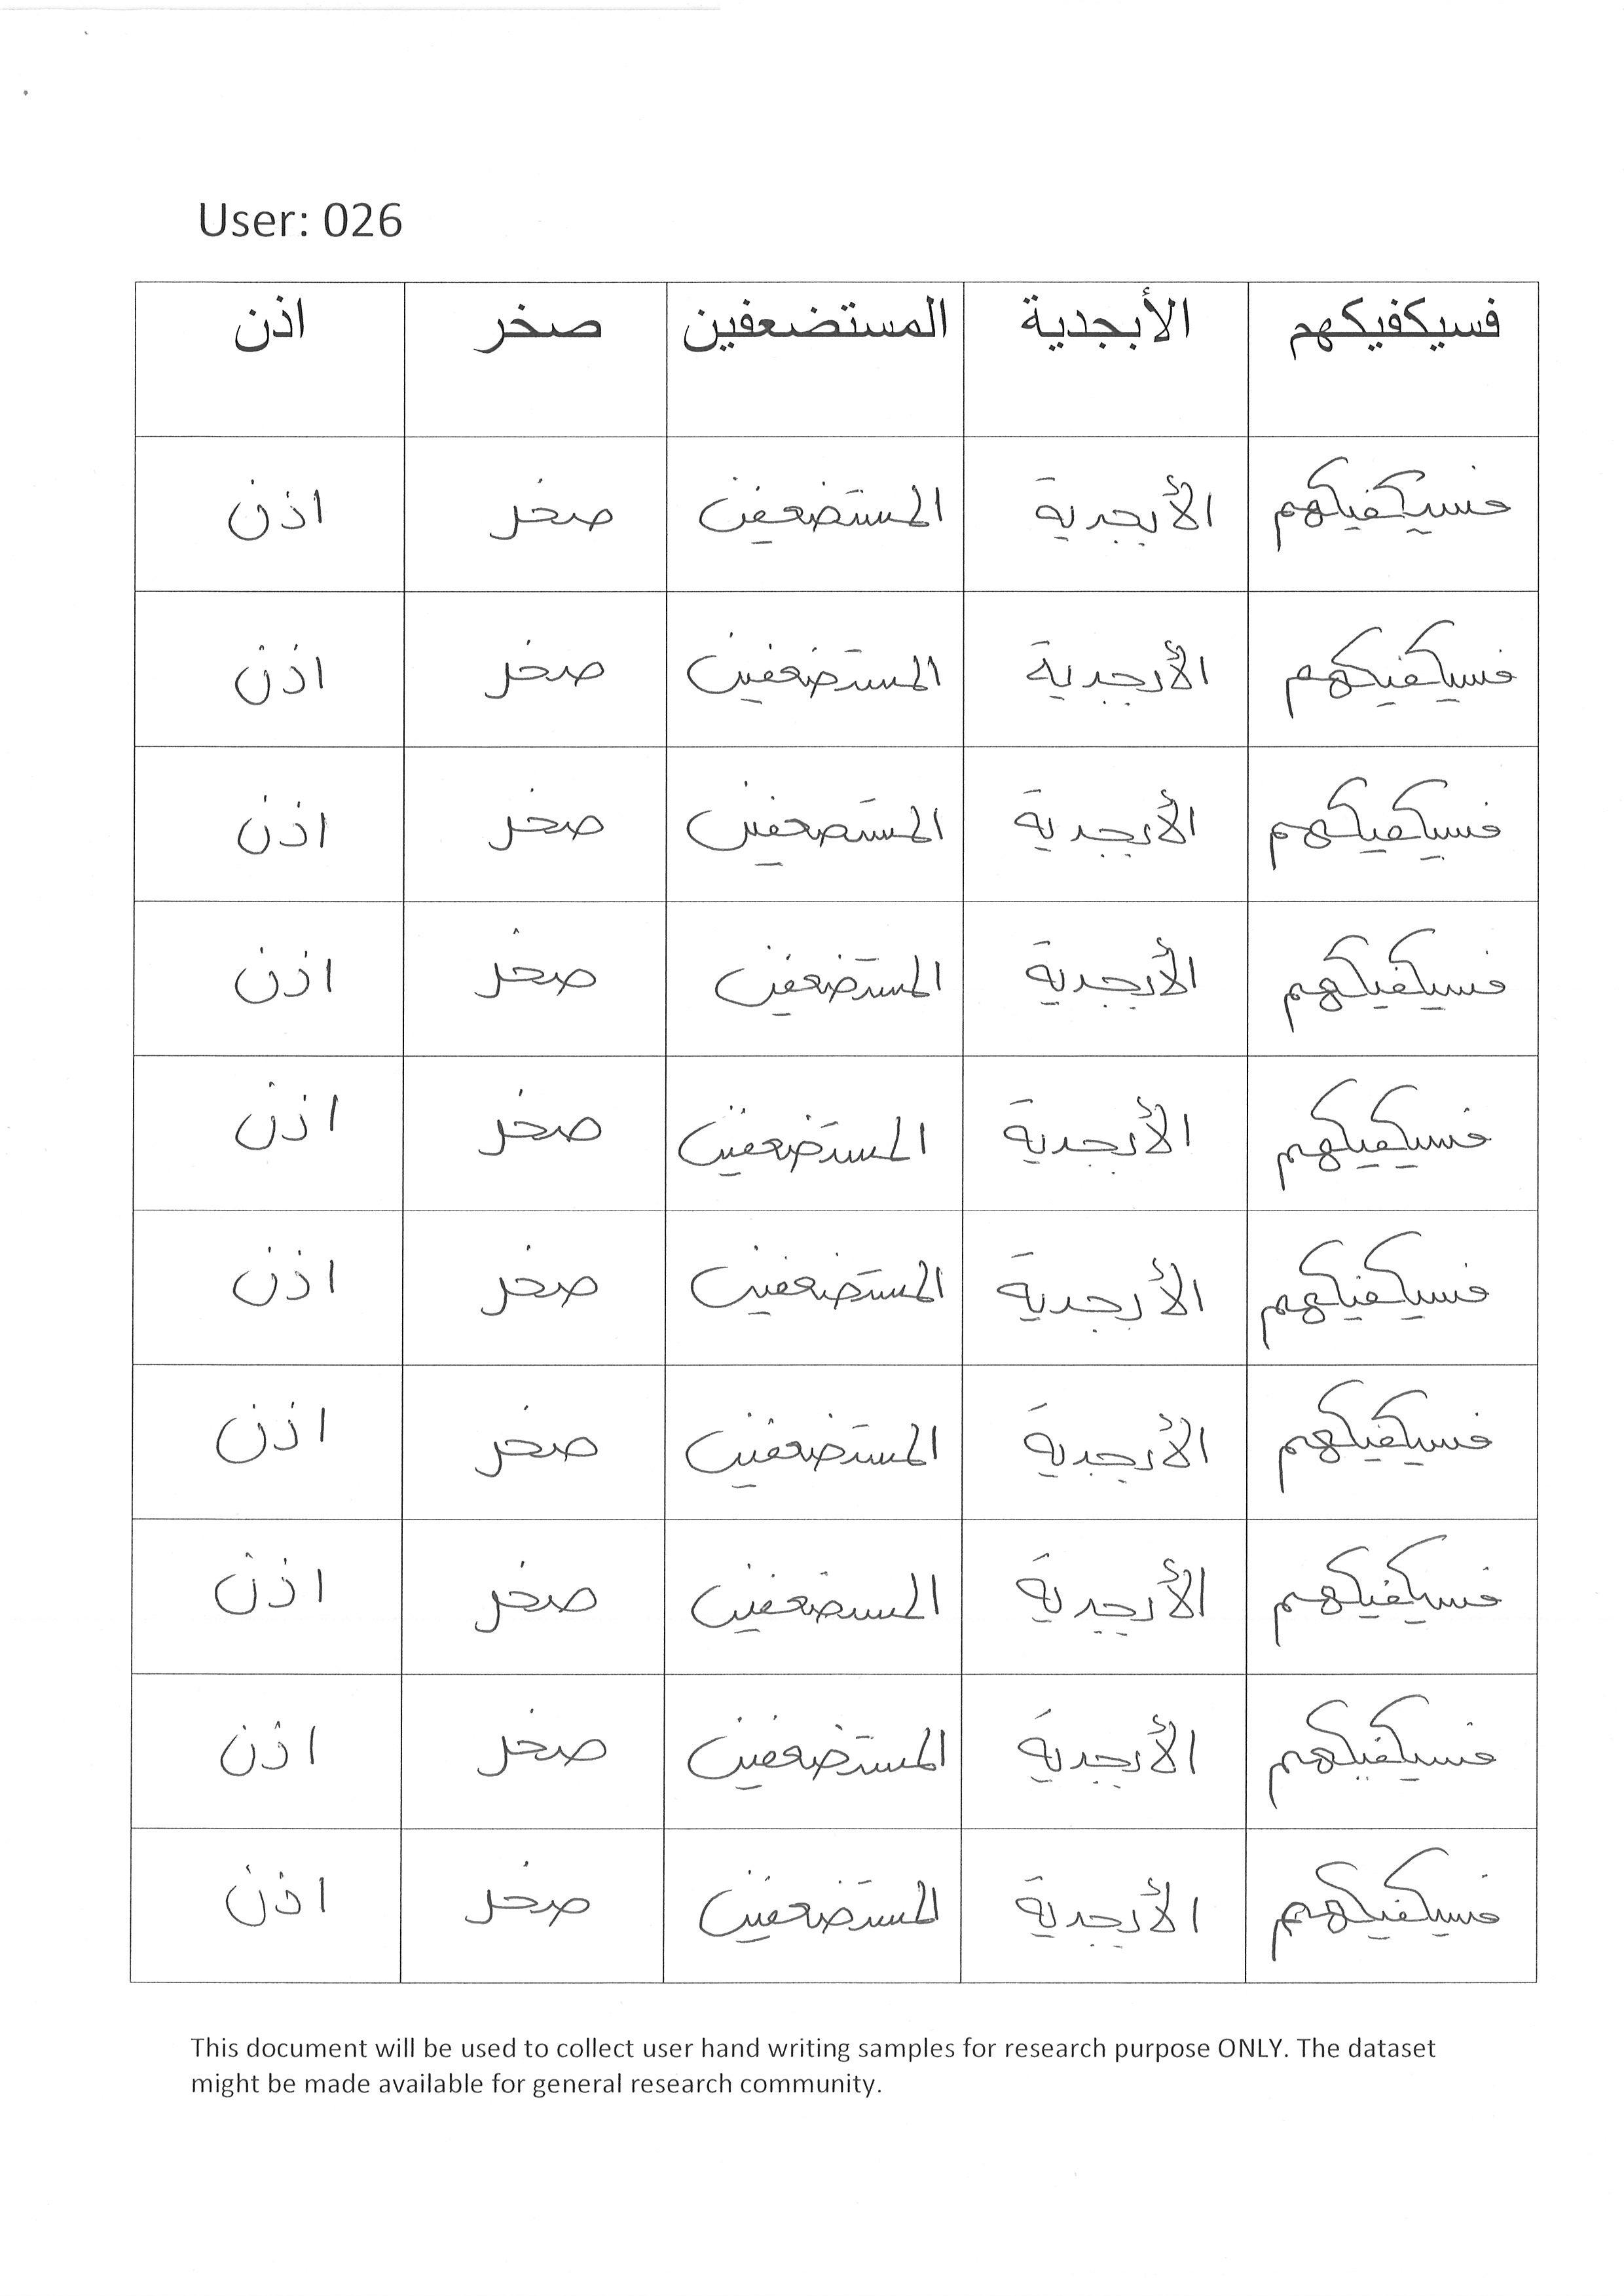 User: 026
فسيكفيكهم الأبجدية المستضعفين صخر اذن
فسيكفيكهم الأبجدية المستضعفين صخر اذن
فسيكفيكهم الأبجدية المستضعفين صخر اذن
فسيكفيكهم الأبجدية المستضعفين صخر اذن
فسيكفيكهم الأبجدية المستضعفين صخر اذن
فسيكفيكهم الأبجدية المستضعفين صخر اذن
فسيكفيكهم الأبجدية المستضعفين صخر اذن
فسيكفيكهم الأبجدية المستضعفين صخر اذن
فسيكفيكهم الأبجدية المستضعفين صخر اذن
فسيكفيكهم الأبجدية المستضعفين صخر اذن
فسيكفيكهم الأبجدية المستضعفين صخر اذن
This document will be used to collect user hand writing samples for research purpose ONLY. The dataset
might be made available for general research community.